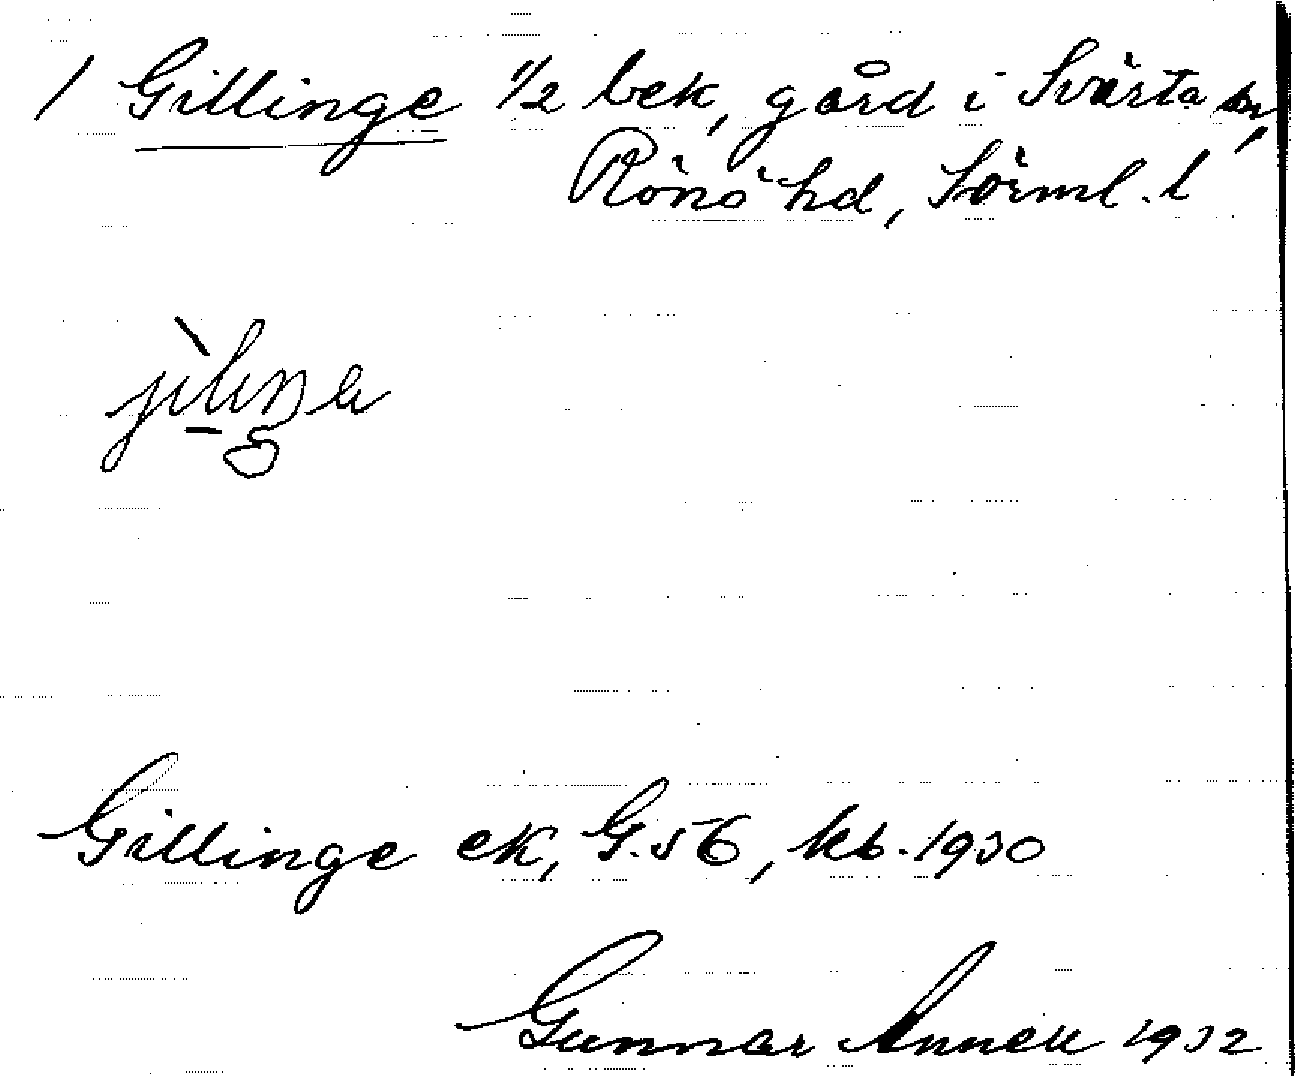 / Gillinge 1/2 bek, gård i Svärta sn,
Rönö hd, Sörml. l
Gillinge ek, G.56, kb. 1930
Gunnar Annell 1932